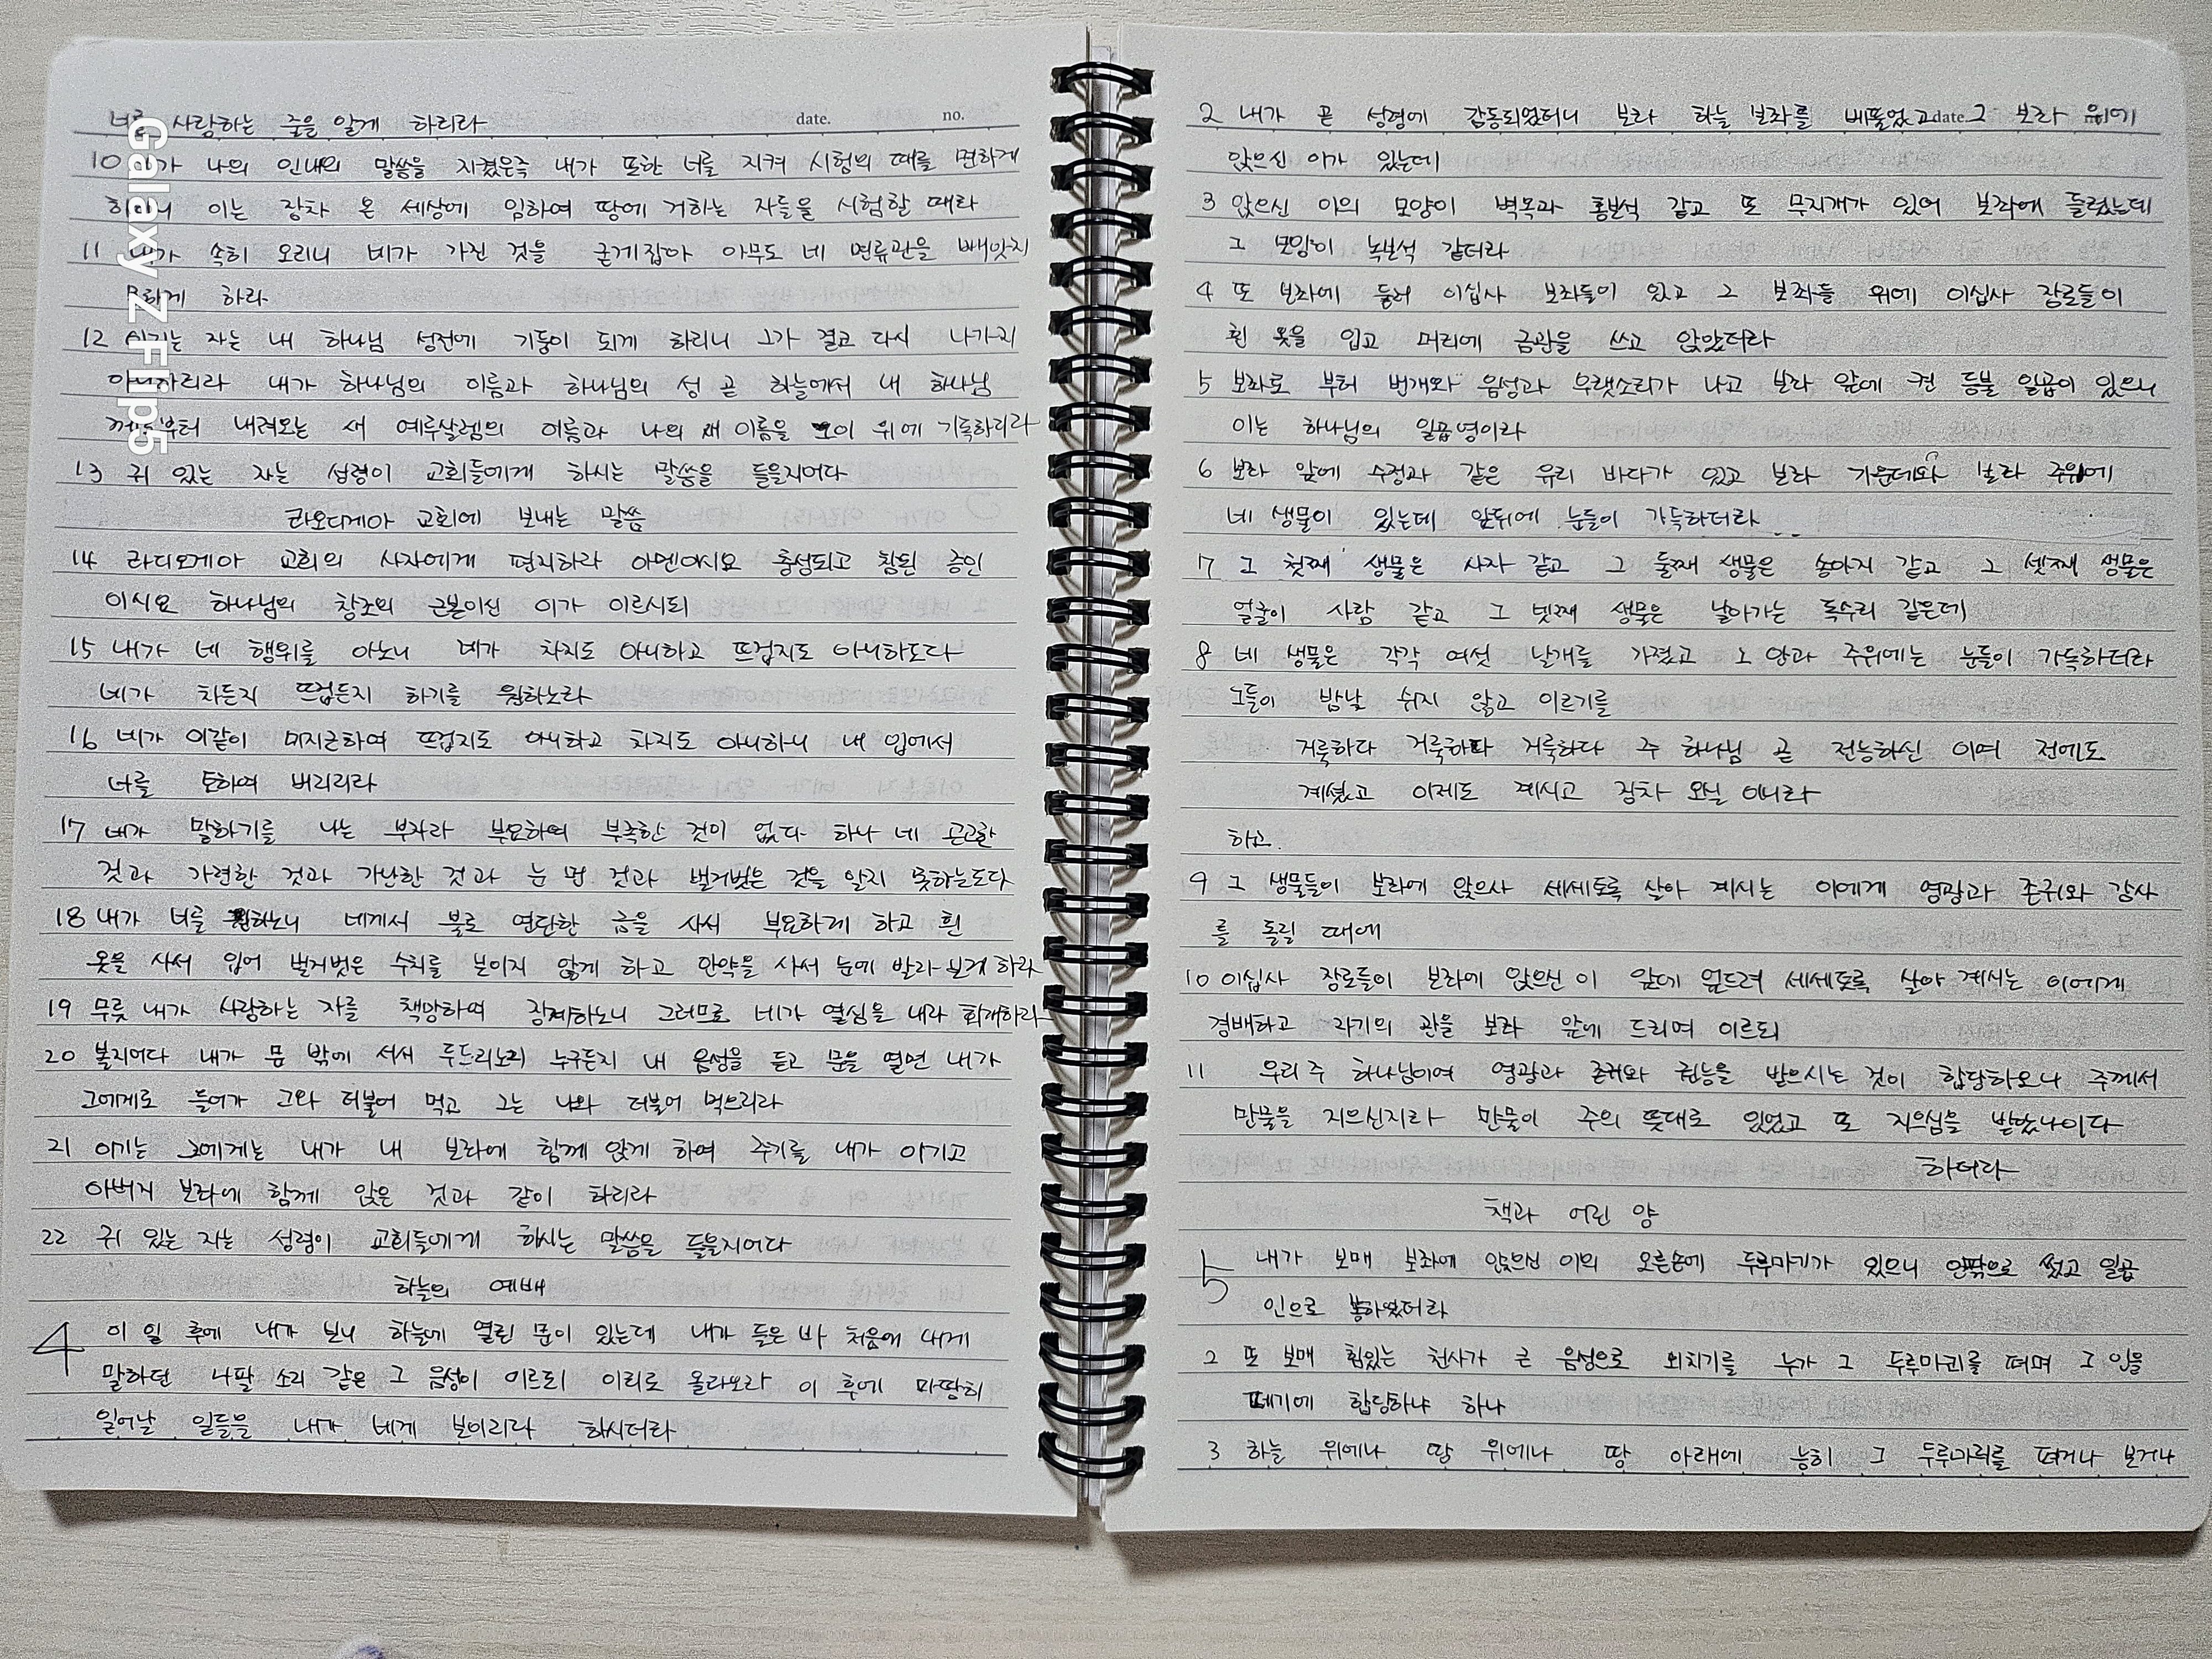 너를 사랑하는 줄을 알게 하리라
date. no.
10 가 나의 인내의 말씀을 지켰은즉 내가 또한 너를 지켜 시험의 때를 면하게
이는 장차 온 세상에 임하여 땅에 거하는 자들을 시험할 때라
11 내가 속히 오리니 네가 가진 것을 굳게잡아 아무도 네 면류관을 빼앗지
하게 하라
12 이기는 자는 내 하나님 성전에 기둥이 되게 하리니 그가 결코 다시 나가지
아니하리라 내가 하나님의 이름과 하나님의 성 곧 하늘에서 내 하나님
께로부터 내려오는 새 예루살렘의 이름과 나의 새 이름을 그이 위에 기록하리라
13 귀 있는 자는 성령이 교회들에게 하시는 말씀을 들을지어다
라오디게아 교회에 보내는 말씀
14 라디오게아 교회의 사자에게 편지하라 아멘이시요 충성되고 참된 증인
이시요 하나님의 창조의 근본이신 이가 이르시되
15 내가 네 행위를 아노니 네가 차지도 아니하고 뜨겁지도 아니하도다
네가 차든지 뜨겁든지 하기를 원하노라
16 네가 이같이 미지근하여 뜨겁지도 아니하고 차지도 아니하니 내 입에서
너를 토하여 버리리라
17 네가 말하기를 나는 부자라 부요하여 부족한 것이 없다 하나 네 곤고한
것과 가련한 것과 가난한 것과 눈 먼 것과 벌거벗은 것을 알지 못하는도다
18 내가 너를 권하노니 네게서 불로 연단한 금을 사서 부요하게 하고 흰
옷을 사서 입어 벌거벗은 수치를 보이지 않게 하고 안약을 사서 눈에 발라 보게 하라
19 무릇 내가 사랑하는 자를 책망하여 징계하노니 그러므로 네가 열심을 내라 회개하라
20 볼지어다 내가 문 밖에 서서 두드리노니 누구든지 내 음성을 듣고 문을 열면 내가
그에게로 들어가 그와 더불어 먹고 그는 나와 더불어 먹으리라
21 이기는 그에게는 내가 내 보좌에 함께 앉게 하여 주기를 내가 이기고
아버지 보좌에 함께 앉은 것과 같이 하리라
22 귀 있는 자는 성령이 교회들에게 하시는 말씀을 들을지어다
하늘의 예배
4 이 일 후에 내가 보니 하늘에 열린 문이 있는데 내가 들은 바 처음에 내게
말하던 나팔 소리 같은 그 음성이 이르되 이리로 올라오라 이 후에 마땅히
일어날 일들을 내가 네게 보이리라 하시더라
Galaxy Z Flip5
2 내가 곧 성령에 감동되었더니 보라 하늘 보좌를 베풀었고 그 보좌 위에
date.
앉으신 이가 있는데
3 앉으신 이의 모양이 벽옥과 홍보석 같고 또 무지개가 있어 보좌에 둘렸는데
그 모양이 녹보석 같더라
4 또 보좌에 둘러 이십사 보좌들이 있고 그 보좌들 위에 이십사 장로들이
흰 옷을 입고 머리에 금관을 쓰고 앉았더라
5 보좌로 부터 번개와 음성과 우렛소리가 나고 보좌 앞에 켠 등불 일곱이 있으니
이는 하나님의 일곱영이라
6 보좌 앞에 수정과 같은 유리 바다가 있고 보좌 가운데와 보좌 주위에
네 생물이 있는데 앞뒤에 눈들이 가득하더라
7 그 첫째 생물은 사자 같고 그 둘째 생물은 송아지 같고 그 셋째 생물은
얼굴이 사람 같고 그 넷째 생물은 날아가는 독수리 같은데
8 네 생물은 각각 여섯 날개를 가졌고 그 안과 주위에는 눈들이 가득하더라
그들이 밤낮 쉬지 않고 이르기를
거룩하다 거룩하다 거룩하다 주 하나님 곧 전능하신 이여 전에도
계셨고 이제도 계시고 장차 오실 이시라
하고.
9 그 생물들이 보좌에 앉으사 세세토록 살아 계시는 이에게 영광과 존귀와 감사
를 돌릴 때에
10 이십사 장로들이 보좌에 앉으신 이 앞에 엎드려 세세토록 살아 계시는 이에게
경배하고 자기의 관을 보좌 앞에 드리며 이르되
11 우리 주 하나님이여 영광과 존귀와 권능을 받으시는 것이 합당하오니 주께서
만물을 지으신지라 만물이 주의 뜻대로 있었고 또 지으심을 받았나이다
하더라
책과 어린 양
5 내가 보매 보좌에 앉으신 이의 오른손에 두루마기가 있으니 안팎으로 썼고 일곱
인으로 봉하였더라
2 또 보매 힘있는 천사가 큰 음성으로 외치기를 누가 그 두루마리를 펴며 그 인을
떼기에 합당하냐 하나
3 하늘 위에나 땅 위에나 땅 아래에 능히 그 두루마리를 펴거나 보거나